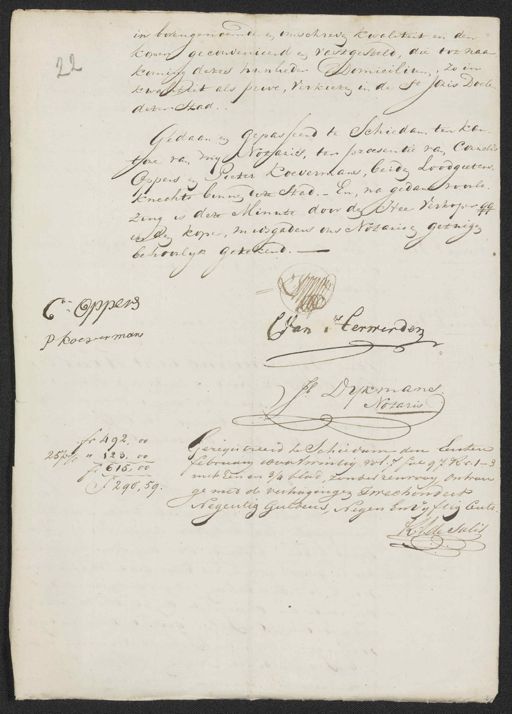 22
in bovengemeende en omschreven kwaliteit en den
koper geconvenieerd en vastgesteld, die tot naa
koming dezes hunnheden Domicilium, zo in
kwaliteit als privé, verkiezen in de St Joris Doele
dezer Stad. —
Gedaan en gepasseerd te Schiedam, ten kan-
tore van mij Notaris, ten presentie van Cornelis
Oppers en Pieter Koevermans, beide Loodgieters
knechts binnen deze Stad. — En, na gedane voorle-
zing is deze Minute door de Heer Verkoper
en de koper, mitsgaders ons Notaris en getuigen
behoorlijk getekend. —
C. Oppers
P Koevermans
Van Herwerden
Dykmans
Notaris
fr 492,00
25 pct " 123,00
f 615,00
f 290,59.
Geregistreerd te Schiedam den Eersten
februari
met Een en 3/4 blad, zonder renvooy, ontvan
gen met de verhooging Tweehonderd
Negentig Guldens, Negen en Vyftig Cents.
de Salis